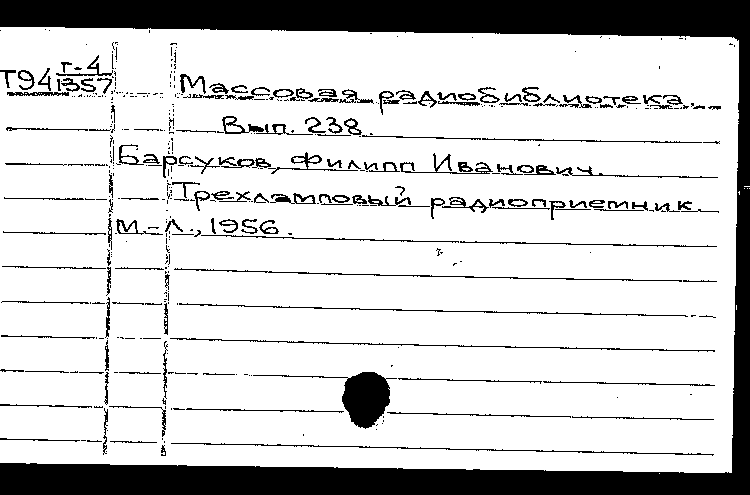 Т94 Г-4
1357
Массовая радиобиблиотека.
Вып. 238.
Барсуков, Филипп Иванович.
Трехламповый радиоприемник.
М.-Л., 1956.